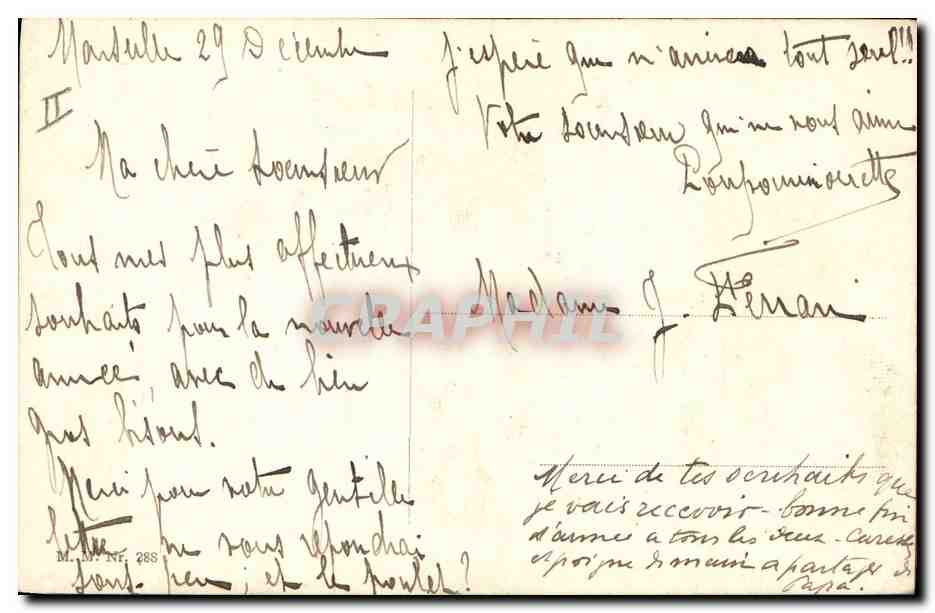 Marseille 29 Décembre
II
Ma chère soeur
Tous mes plus affectueux
souhaits pour la nouvelle
année, avec de bien
gros bisous.
Merci pour votre gentille
lettre, je vous répondrai
sous peu ; et le poulet ?
M. M. Nr. 288
j'espère que n'arrivera tout seul!!
Votre qui ne vous aime
Madame J. Ferrari
Merci de tes souhaits que
je vais recevoir - bonne fin
d'année a tous les deux - Caresses
et poigne de main a partager de
Papa.
CPARAMA